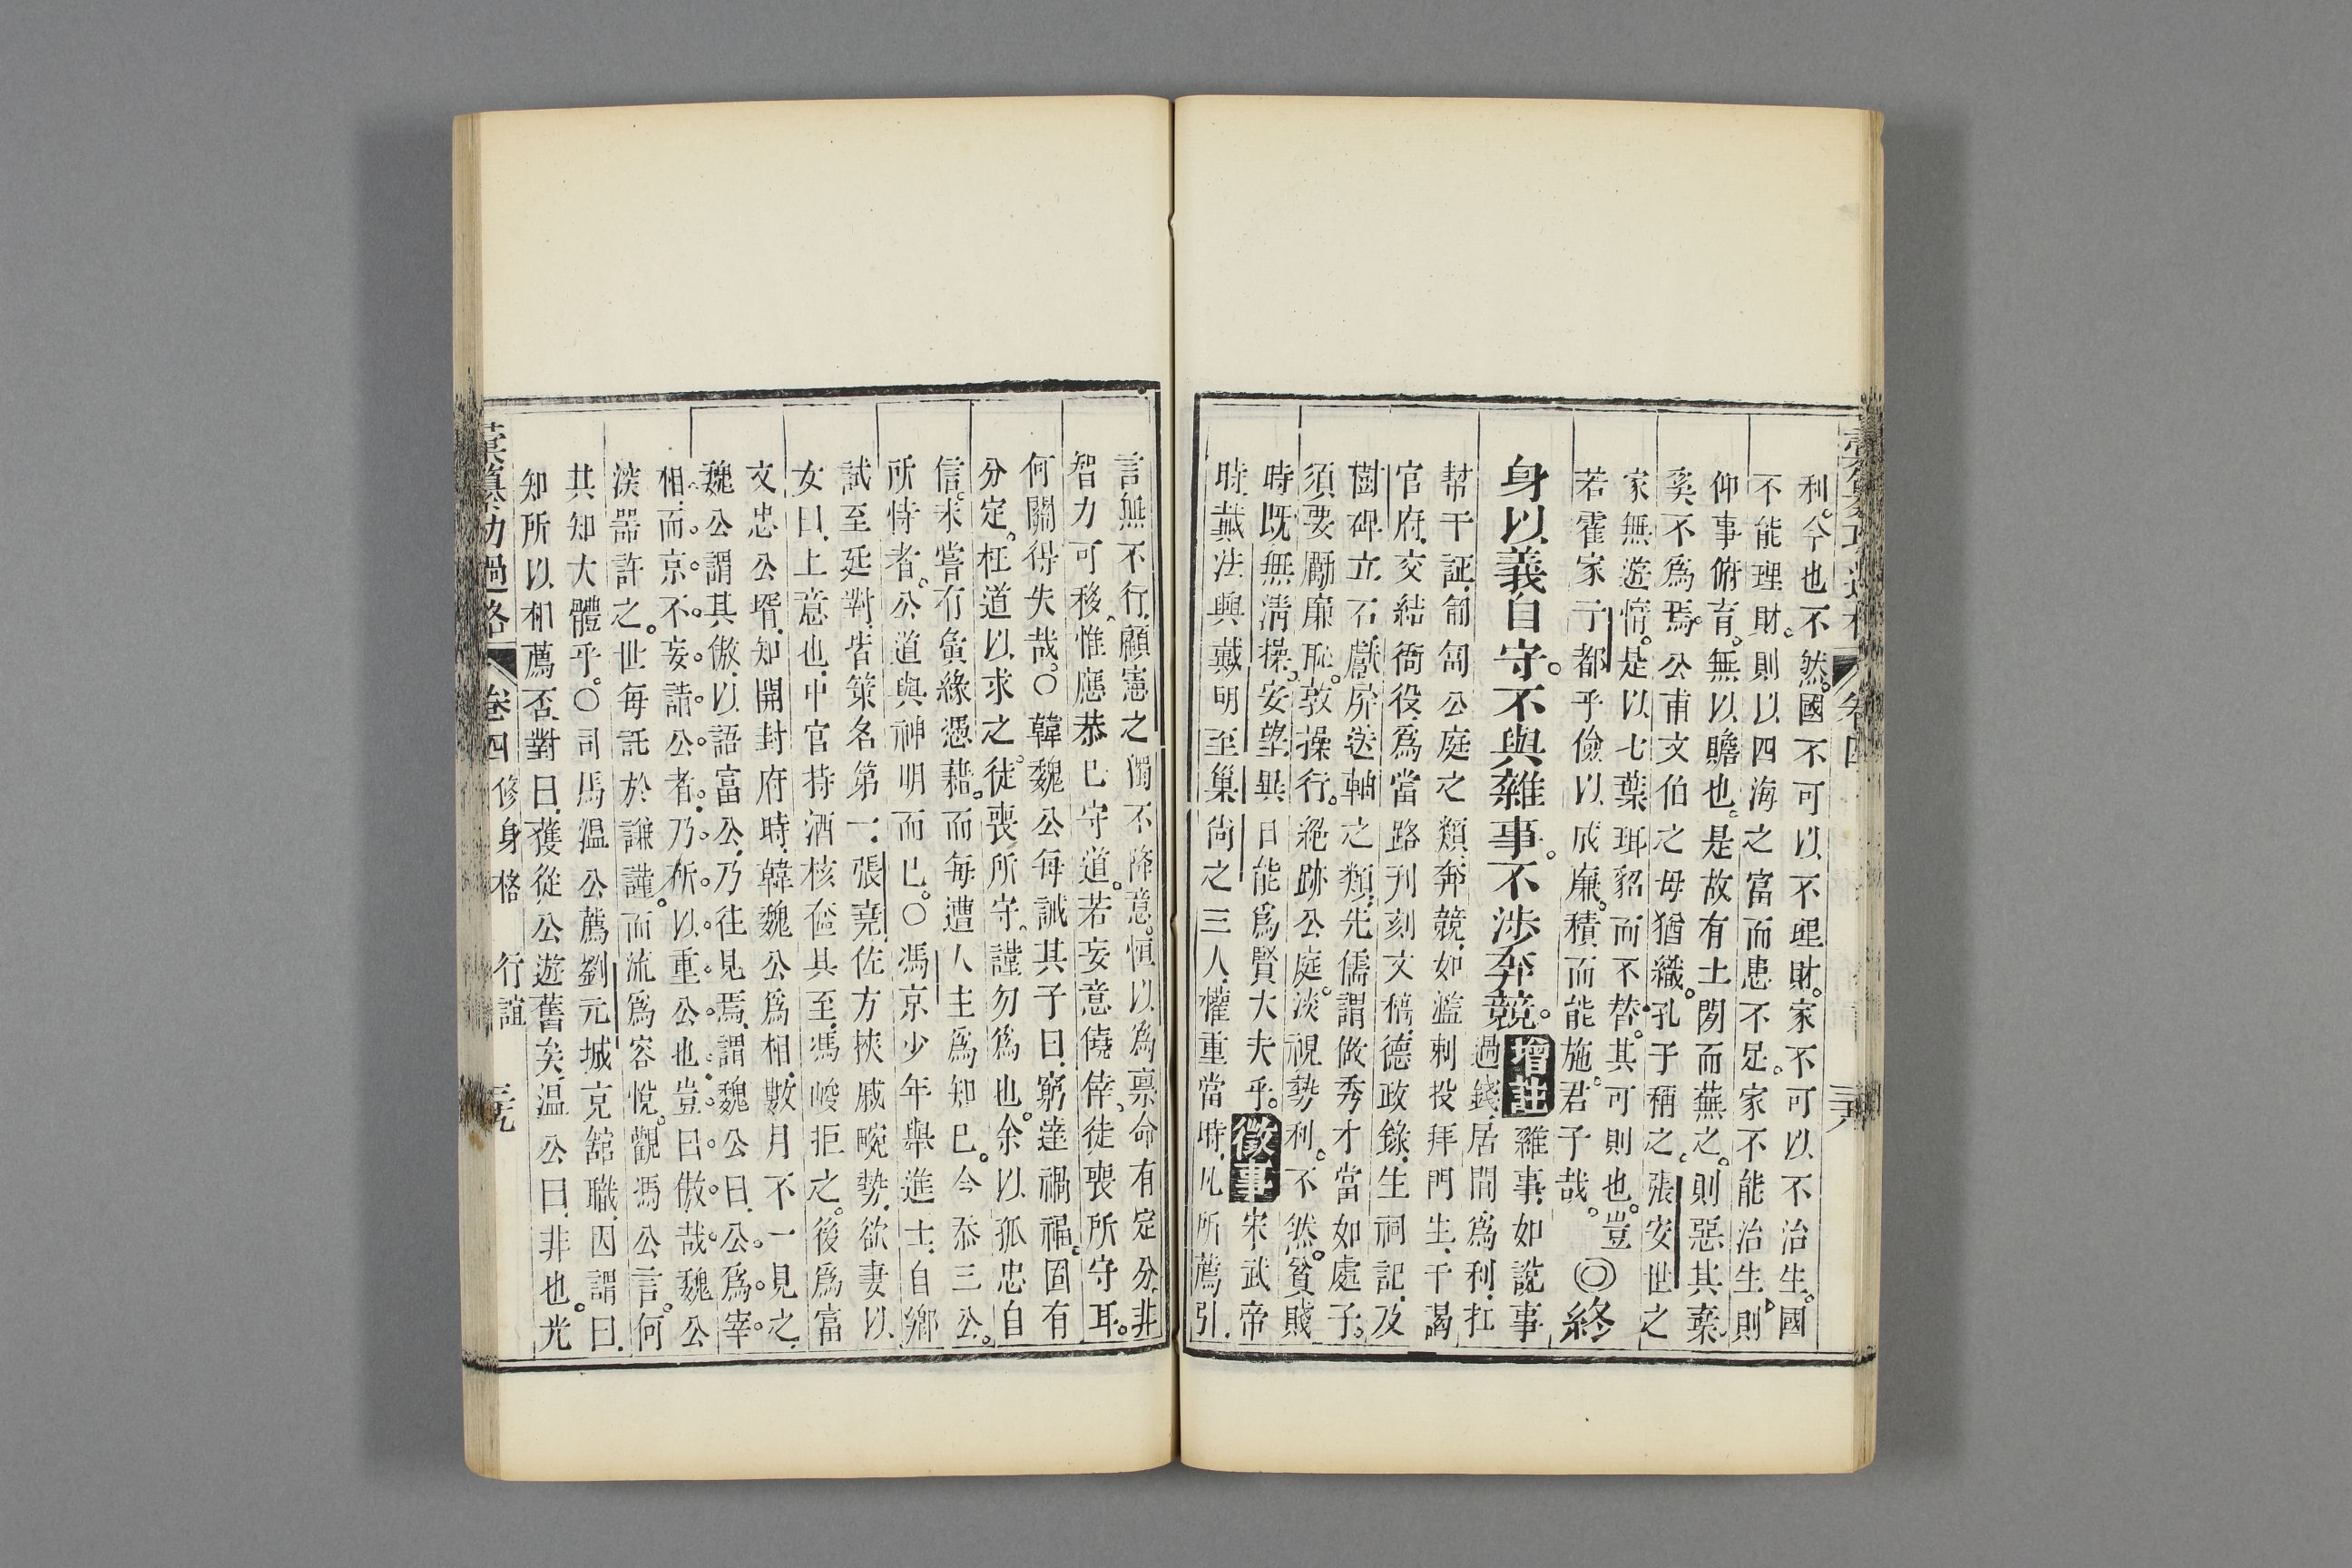 利。今也不然。國不可以不理財。家不可以不治生。國
不能理財。則以四海之富而患不足。家不能治生。則
仰事俯育。無以贍也。是故有土閒而蕪之。則惡其棄。
奚不爲焉。公甫文伯之母猶織。孔子稱之。張安世之
家無遊惰。是以七葉珥貂而不替。其可則也。豈
若霍家子都乎儉以成廉。積而能施。君子哉。◎終
身以義自守。不與雜事。不涉奔競。增註雜事、如說事
過錢、居間爲利、扛
幇干証、匍匐公庭之類、奔競、如濫刺投拜門生、干謁
官府、交結衙役、爲當路刋刻文稿、德政錄、生祠記、及
樹碑立石、獻屏送軸之類、先儒謂做秀才當如處子。
須要勵廉恥。敦操行。絕跡公庭。淡視勢利。不然。貧賤
時既無淸操、安望異日能爲賢大夫乎。徵事宋武帝
時、戴法興戴明至巢尚之三人、權重當時、凡所薦引、
言無不行、顧憲之獨不降意。恒以爲禀命有定分、非
智力可移、惟應恭巳守道。若妄意僥倖、徒喪所守耳。
何關得失哉。○韓魏公每誡其子曰、窮達禍福、固有
分定。枉道以求之。徒喪所守、謹勿爲也。余以孤忠自
信。未嘗有夤緣憑藉。而每遭人主爲知巳。今忝三公。
所恃者。公道與神明而巳。○馮京少年舉進士、自鄉
試至廷對、皆策名第一、張堯佐方挾戚畹勢、欲妻以
女曰、上意也、中官持酒核奩具至、馮峻拒之。後爲富
文忠公壻、知開封府時、韓魏公爲相、數月不一見之、
魏公謂其傲、以語富公、乃往見焉、謂魏公曰、公爲宰
相、而京不妄謁公者、乃所以重公也。豈曰傲哉。魏公
淡噐許之。世每託於謙謹。而流爲容悅。觀馮公言。何
其知大體乎。○司馬温公薦劉元城充舘職、因謂曰、
知所以相薦否、對曰、獲從公遊舊矣、温公曰、非也。光
彙纂功過格 卷四 修身格 行誼 三九